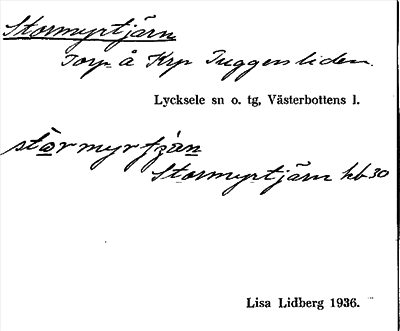 Stormyrtjärn
Torp å Krp Tuggensliden.
Lycksele sn o. tg, Västerbottens l.
stormyrtjän
Stormyrtjärn kb 30
Lisa Lidberg 1936.